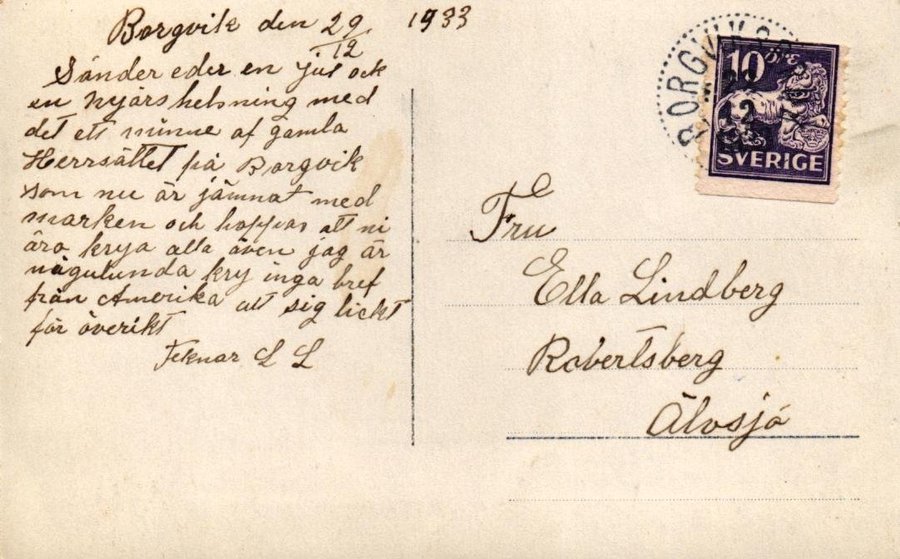 Borgvik den 29/12 1933
Sänder eder en jul ock
en nyårshelsning med
det ett minne af gamla
Herrsättet på Borgvik
som nu är jämnat med
marken och hoppas att ni
äro krya alla även jag är
någulunda kry inga bref
från Amerika att sig lickt
för överikt
Teknar L L
BORGVIK
10 ÖRE
SVERIGE
Fru
Ella Lindberg
Robertsberg
Älvsjö